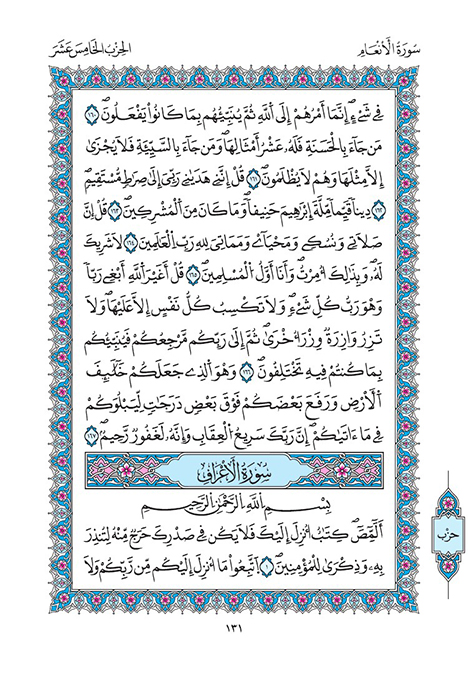 سورة الأنعام
الحزب الخامس عشر
فِے شَےْءٍۖ اِنَّمَآ أَمْرُهُمُۥٓ إِلَى اَللَّهِ ثُمَّ يُنَبِّئُهُم بِمَا كَانُواْ يَفْعَلُونَۖ ١٦٠
مَن جَآءَ بِالْحَسَنَةِ فَلَهُۥ عَشْرُ أَمْثَالِهَاۖ وَمَن جَآءَ بِالسَّيِّئَةِ فَلَا يُجْزَىٰٓ
إِلَّا مِثْلَهَا وَهُمْ لَا يُظْلَمُونَۖ ١٦١ قُلِ اِنَّنِے هَدَىٰنِے رَبِّيَ إِلَىٰ صِرَٰطٖ مُّسْتَقِيمٖ
١٦٢ دِيناٗ قَيِّماٗ مِّلَّةَ إِبْرَٰهِيمَ حَنِيفاٗۖ وَمَا كَانَ مِنَ اَلْمُشْرِكِينَۖ ١٦٣ قُلِ اِنَّ
صَلَاتِے وَنُسُكِے وَمَحْيَآےْ وَمَمَاتِيَ لِلهِ رَبِّ اِلْعَٰلَمِينَۖ ١٦٤ لَا شَرِيكَ
لَهُۥۖ وَبِذَٰلِكَ أُمِرْتُۖ وَأَنَآ أَوَّلُ اُلْمُسْلِمِينَۖ ١٦٥ قُلَ اَغَيْرَ اَللَّهِ أَبْغِے رَبّاٗ
وَهُوَ رَبُّ كُلِّ شَےْءٖۖ وَلَا تَكْسِبُ كُلُّ نَفْسٍ اِلَّا عَلَيْهَاۖ وَلَا
تَزِرُ وَازِرَةٞ وِزْرَ أُخْرَىٰۖ ثُمَّ إِلَىٰ رَبِّكُم مَّرْجِعُكُمْ فَيُنَبِّئُكُم
بِمَا كُنتُمْ فِيهِ تَخْتَلِفُونَۖ ١٦٦ وَهُوَ اَلذِے جَعَلَكُمْ خَلَٰٓئِفَ
اَلْأَرْضِ وَرَفَعَ بَعْضَكُمْ فَوْقَ بَعْضٖ دَرَجَٰتٖ لِّيَبْلُوَكُمْ
فِے مَآ ءَاتَىٰكُمُۥٓۖ إِنَّ رَبَّكَ سَرِيعُ اُلْعِقَابِ وَإِنَّهُۥ لَغَفُورٞ رَّحِيمٌۖ ١٦٧
سورة الأعراف
بِسْمِ اِللَّهِ اِلرَّحْمَٰنِ اِلرَّحِيمِ
أَلَٓمِّٓصَٓۖ كِتَٰبٌ اُنزِلَ إِلَيْكَ فَلَا يَكُن فِے صَدْرِكَ حَرَجٞ مِّنْهُ لِتُنذِرَ
بِهِۦ وَذِكْرَىٰ لِلْمُؤْمِنِينَۖ ١ اَتَّبِعُواْ مَآ أُنزِلَ إِلَيْكُم مِّن رَّبِّكُمْ وَلَا
حزب
١٣١